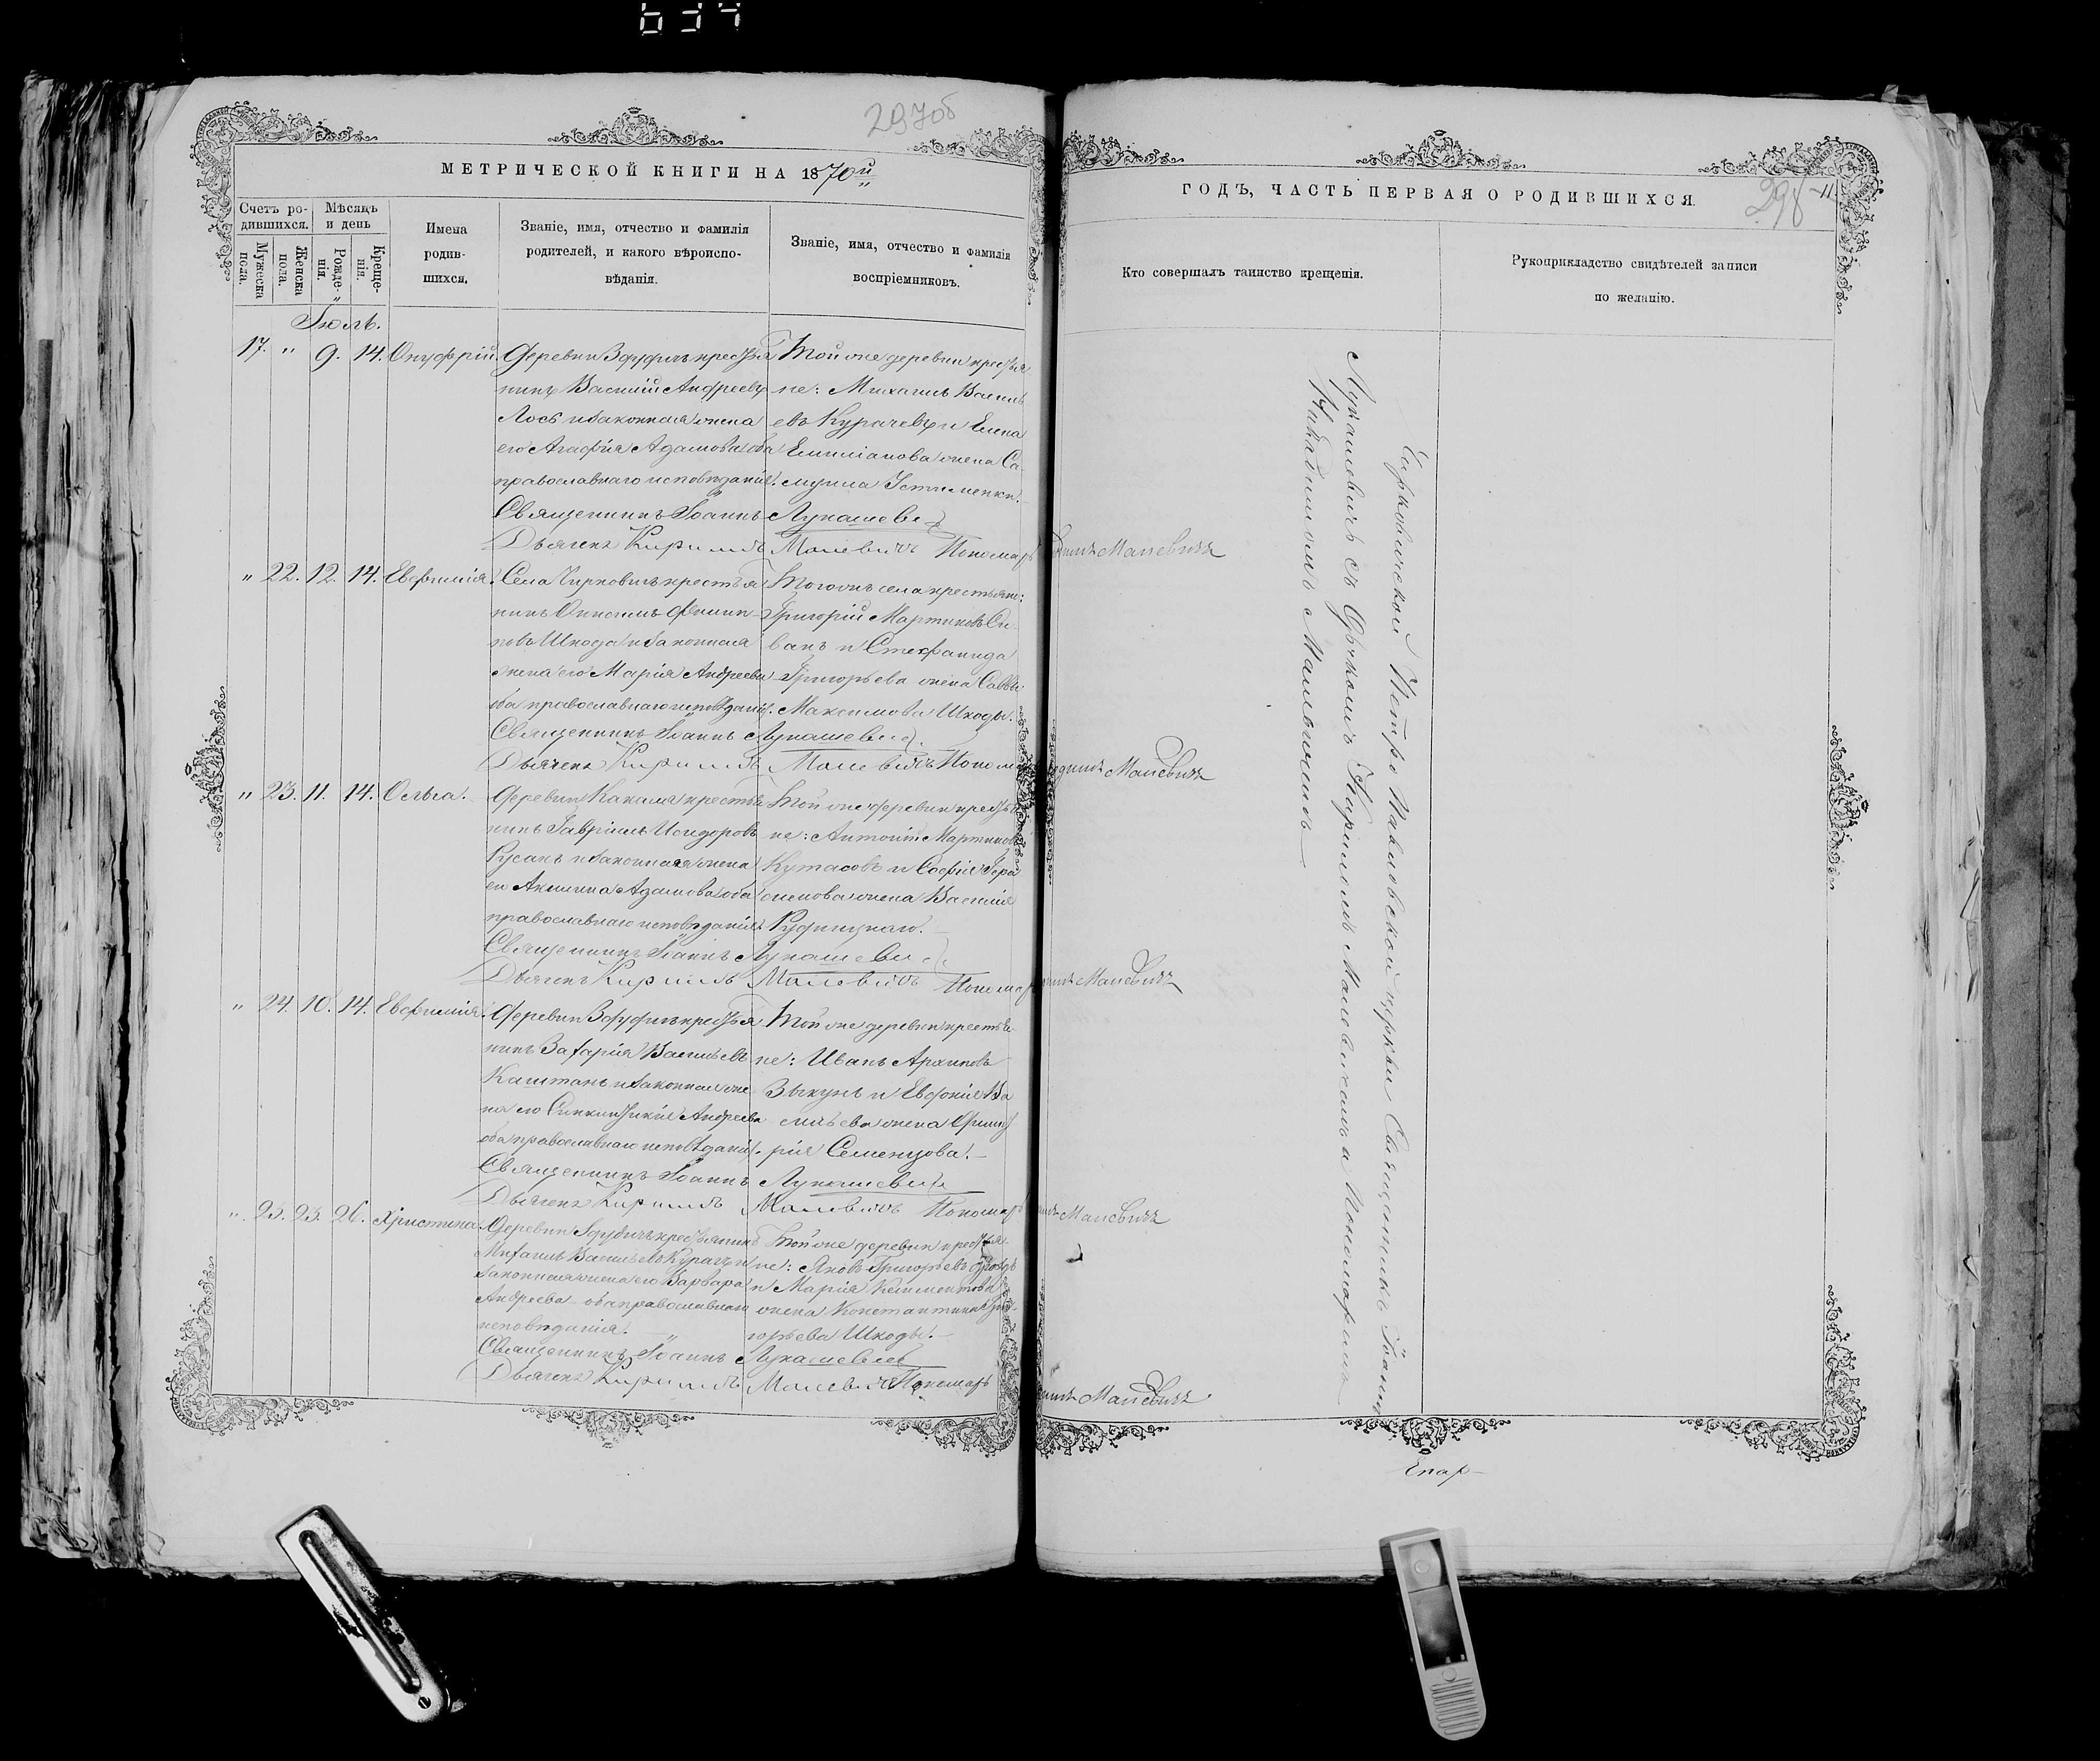 297об
МЕТРИЧЕСКОЙ КНИГИ НА 1870й
Счетъ родившихся.
Мужеска пола.
Женска пола.
Мѣсяцъ и день
Рожденія.
Крещенія.
Имена
родив-
шихся.
Званіе, имя, отчество и фамилія
родителей, и какого вѣроиспо-
вѣданія.
Званіе, имя, отчество и фамилія
воспріемниковъ.
Іюль.
17. " 9. 14. Онуфрій.
Деревни крестья
нинъ Василій Андреевъ
Лось и законная жена
его Агафія Адамова оба
православнаго исповѣданія.
Той же деревни крестья
не: Михаилъ Василь
евъ и Елена
Емиліанова жена Са
муила
Священникъ Іоаннъ Лукашевичъ
Дьячекъ Кириллъ Малевичъ Пономарь Малевичъ
" 22. 12. 14. Евфимія.
Села крестья
нинъ
новъ Шкода и законная
жена его Марія Андреева
оба православнаго исповѣданія.
Того же села крестьяне:
Григорій Мартиновъ Си
вакъ и Стефанида
Григорьева жена Саввы
Максимова Шкоды.
Священникъ Іоаннъ Лукашевичъ.
Дьячекъ Кириллъ Малевичъ Малевичъ
" 23. 11. 14. Ольга.
Деревни крестья
нинъ Гавріилъ Исидоровъ
Русакъ и законная жена
его Акилина Адамова оба
православнаго исповѣданія.
Той же деревни крестья
не: Антоній Мартиновъ
Кутасовъ и Софія Гера
симова жена Василія
Священникъ Іоаннъ Лукашевичъ
Дьячекъ Кириллъ Малевичъ Малевичъ
" 24. 10. 14. Евфимія.
Деревни крестья
нинъ Захарія Васильевъ
Каштанъ и законная же
на его Андреева
оба православнаго исповѣданія.
Той же деревни крестья
не: Иванъ Архиповъ
Зыкунъ и Ва
сильева жена
рія Семенцова.
Священникъ Іоаннъ Лукашевичъ
Дьячекъ Кириллъ Малевичъ Пономарь Малевичъ
" 25. 23. 26. Христина.
Деревни крестьянинъ
Михаилъ Васильевъ и
законная жена его Варвара
Андреева оба православнаго
исповѣданія.
Той же деревни крестья
не: Яковъ Григорьевъ Дроздъ
и Марія Климентова
жена Константина Гри
горьева Шкоды.
Священникъ Іоаннъ Лукашевичъ
Дьячекъ Кириллъ Малевичъ Пономарь Малевичъ
ГОДЪ, ЧАСТЬ ПЕРВАЯ О РОДИВШИХСЯ.
298
Кто совершалъ таинство крещенія.
Рукоприкладство свидѣтелей записи
по желанію.
Чирковичской Петро Павловской церкви Священникъ Іоаннъ
Лукашевичъ съ Дьячкомъ Кирилломъ Малевичемъ и Пономаремъ
Малевичемъ
Епар-